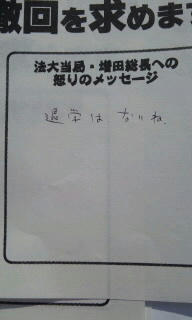 撤回を求めます
法大当局・増田総長への
怒りのメッセージ
退学は ないね。